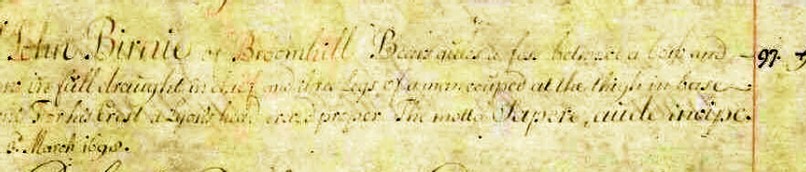 John Birnie of Broomhill Bears gules a fess betwixt a bow and 97.
in full draught in chief and three Legs of a man couped at the thigh in base
For his Crest a Lyon's head erased proper. The motto Sapere, aude incipe.
March 1698.